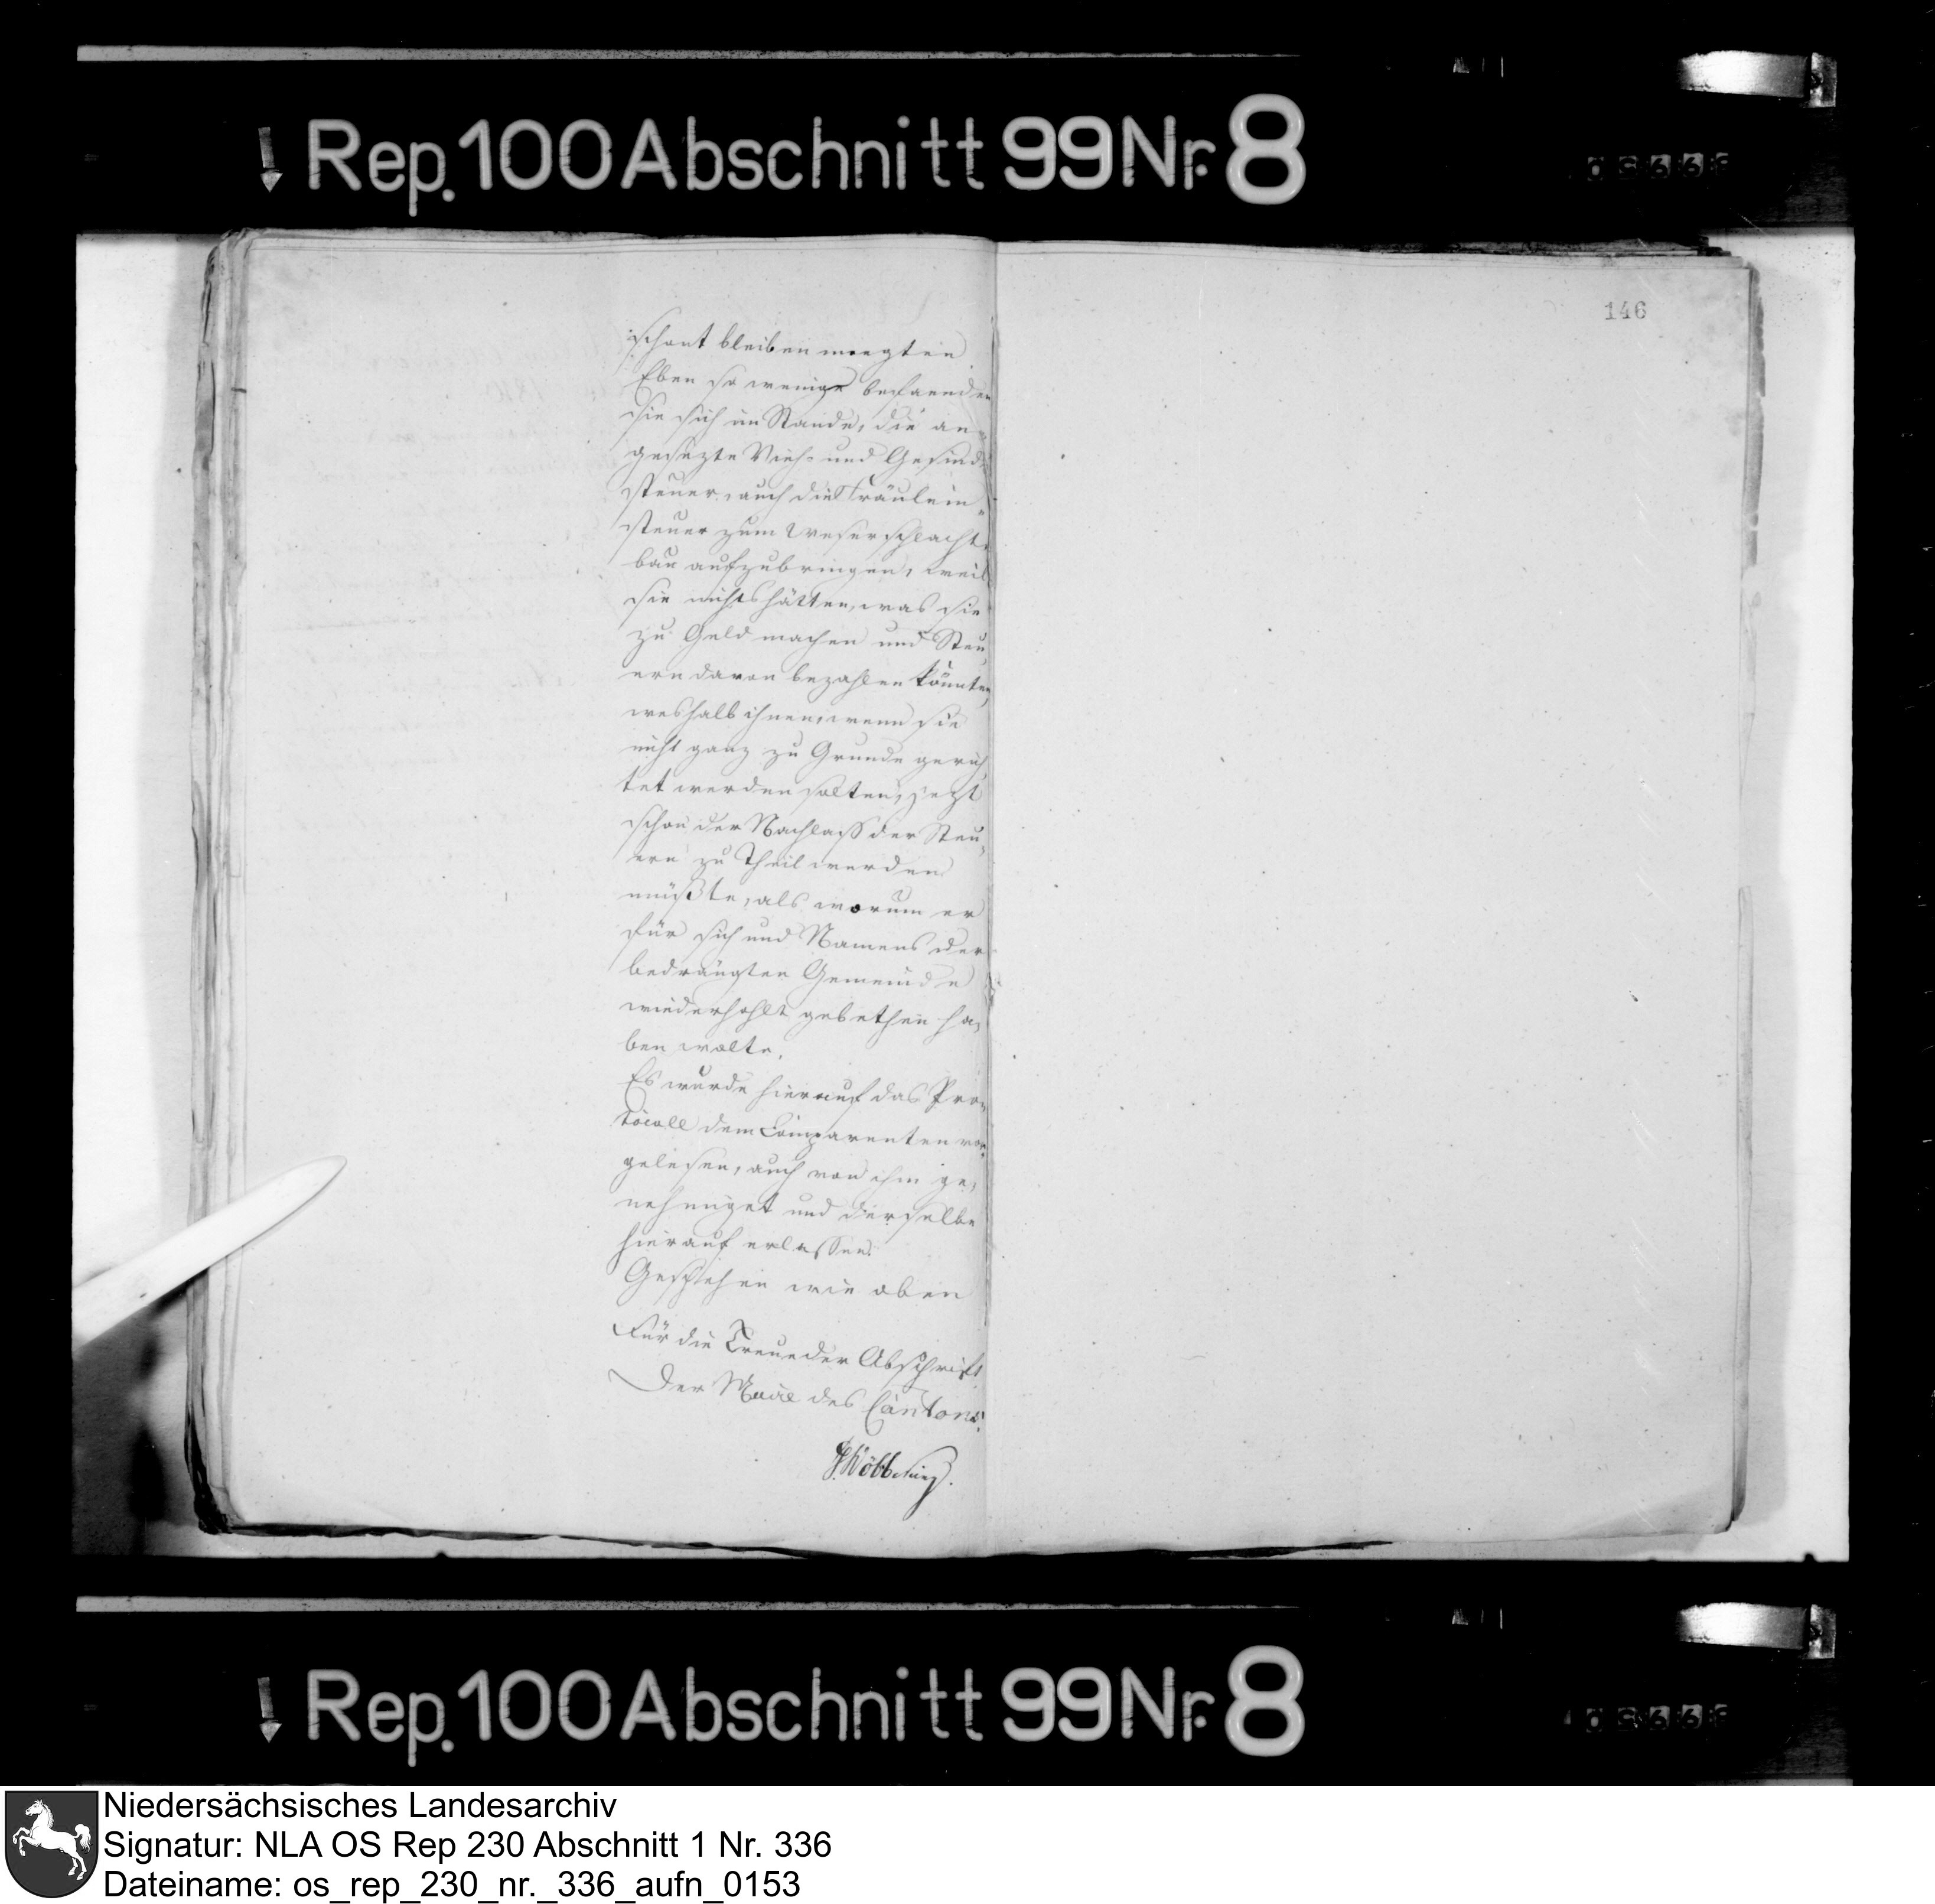 Rep. 100 Abschnitt 99 Nr. 8
146
schont bleiben moegten
Eben so wenige befaenden
sie sich im Stande, die an-
gesezte Vieh- und Gesinde
steuer, auch die Fräulein-
steuer zum Weserschlacht-
bau aufzubringen, weil
sie nichts hätten, was sie
zu Geld machen und Steu-
ern davon bezahlen könnten,
weshalb ihnen, wenn sie
nicht ganz zu Grunde gerich-
tet werden solten, jezt
schon der Nachlaß der Steu-
ern zu Theil werden
müßte, als worum er
für sich und Namens der
bedrängten Gemeinde
wiederhohlt gebethen ha-
ben wolte.
Es wurde hierauf das Pro-
tocoll dem Comparenten vor-
gelesen, auch von ihm ge-
nehmiget und derselbe
hierauf erlassen.
Geschehen wie oben
Für die Treue der Abschrift
Der Maire des Cantons
Rep. 100 Abschnitt 99 Nr. 8
Niedersächsisches Landesarchiv
Signatur: NLA OS Rep 230 Abschnitt 1 Nr. 336
Dateiname: os_rep_230_nr._336_aufn_0153